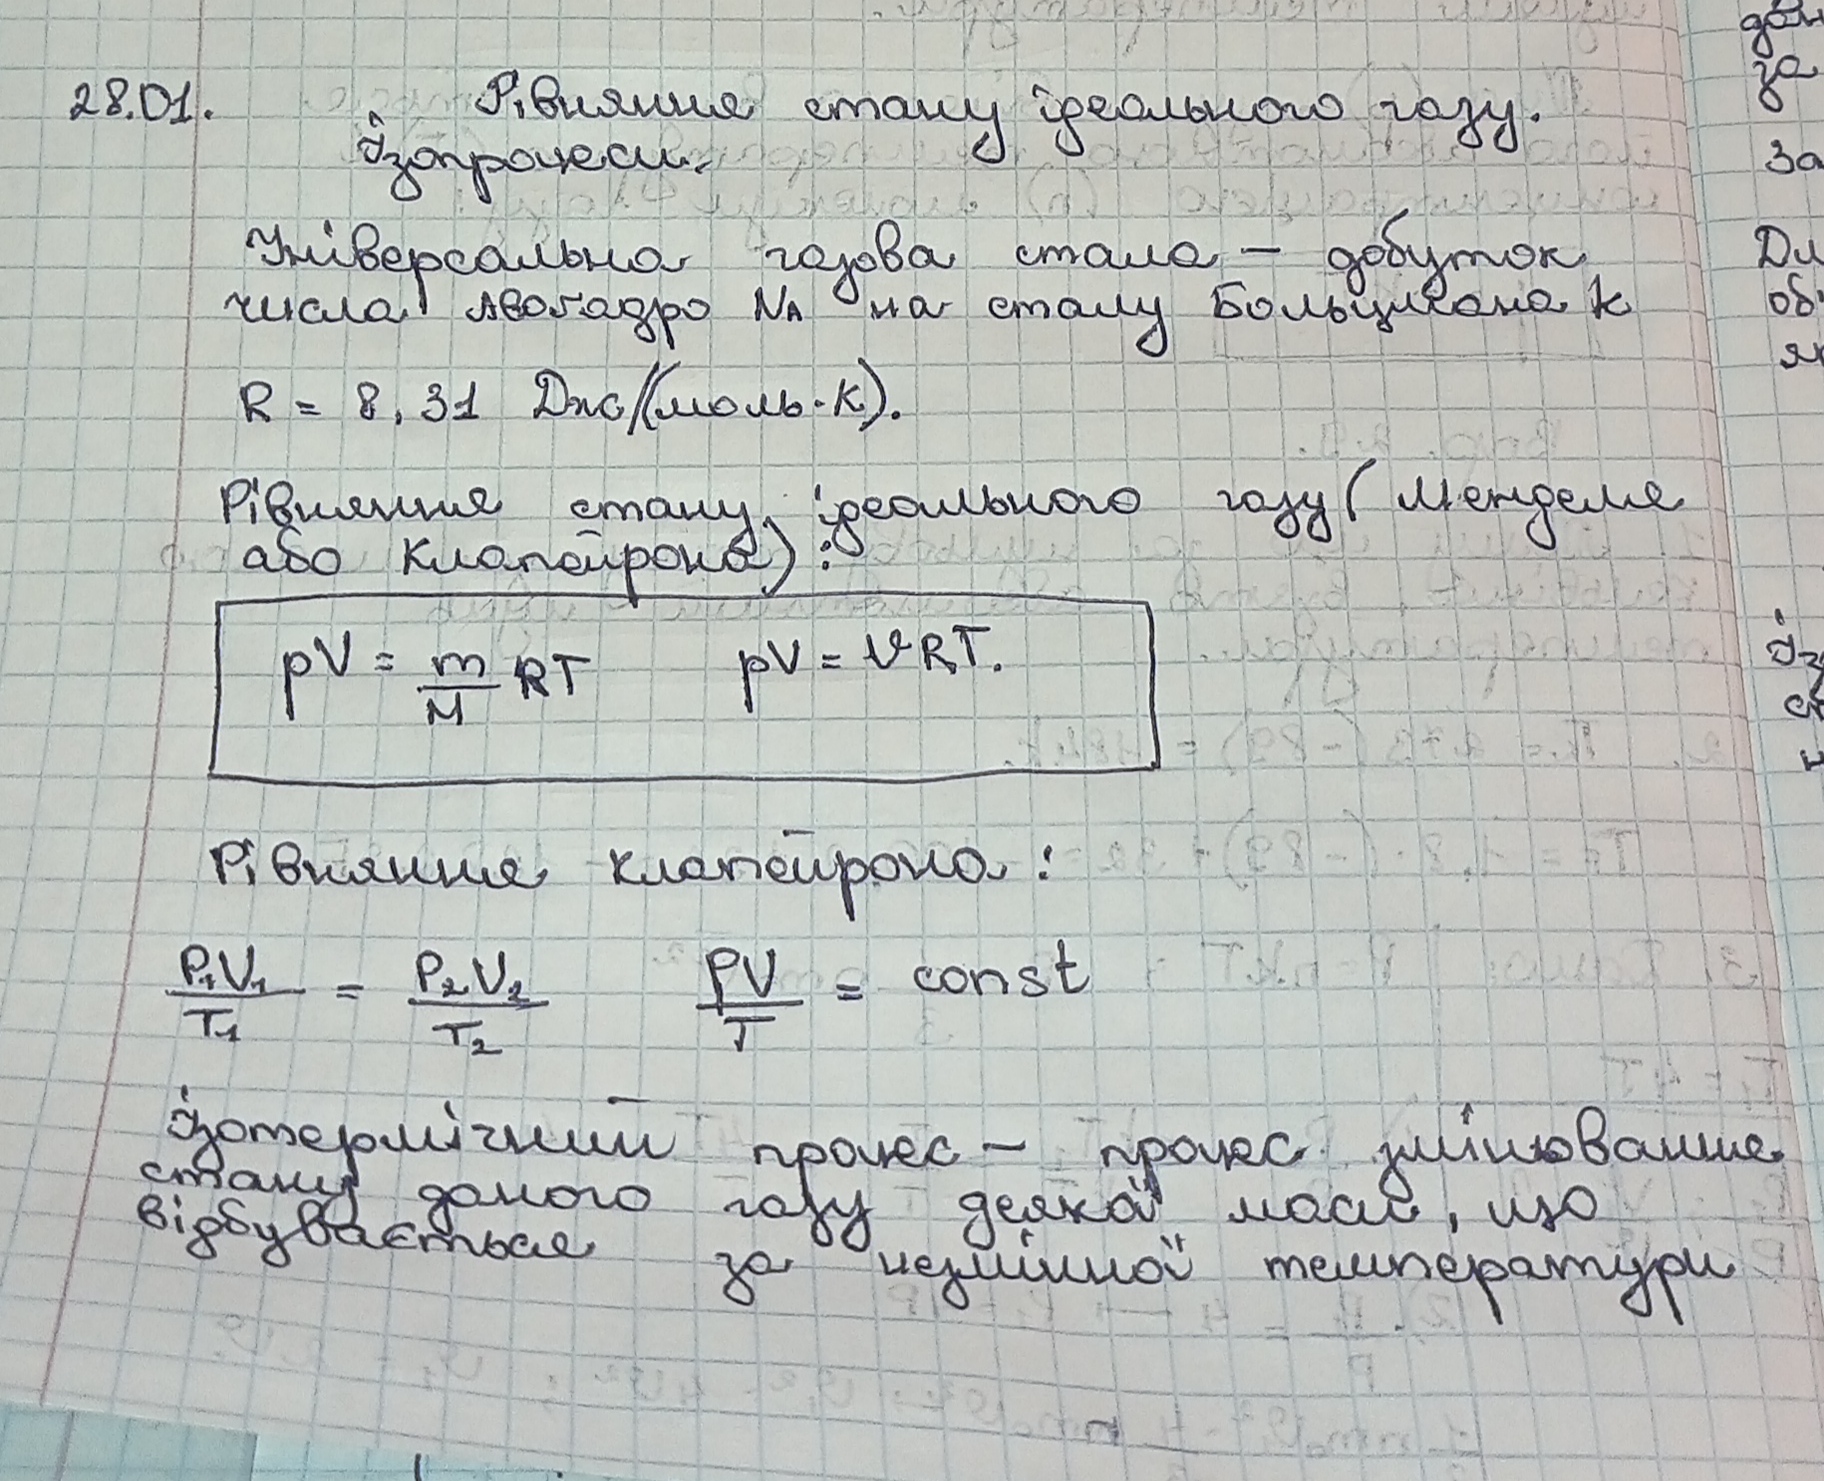 28.01. Рівняння стану ідеального газу.
Ізопроцеси.
Універсальна газова стала – добуток
числа Авогадро NА на сталу Больцмана k
R = 8,31 Дж/(моль·К).
Рівняння стану ідеального газу (Менделя
або Клапейрона):
pV = m/M RT pV = νRT.
Рівняння Клапейрона:
P₁V₁/T₁ = P₂V₂/T₂ PV/T = const
Ізотермічний процес – процес змінювання
стану даного газу деякої маси, що
відбувається за незмінної температури
дан
за
За
Дл
об
як
Із
ст
н